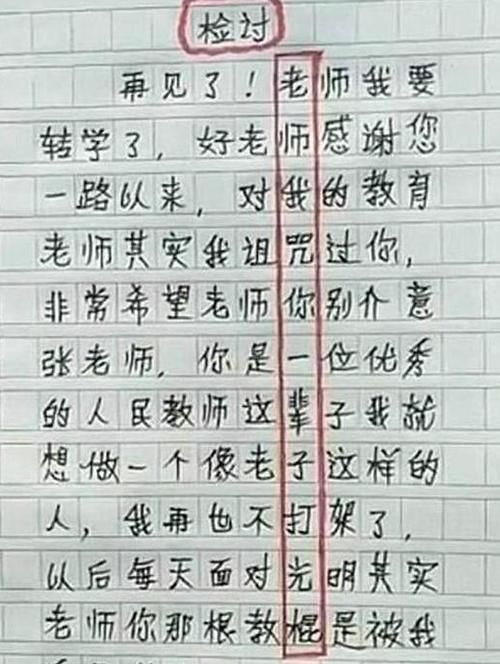 检讨
再见了！老师我要
转学了，好老师感谢您
一路以来，对我的教育
老师其实我诅咒过你，
非常希望老师你别介意
张老师，你是一位优秀
的人民教师这辈子我就
想做一个像老子这样的
人，我再也不打架了，
以后每天面对光明其实
老师你那根教棍是被我